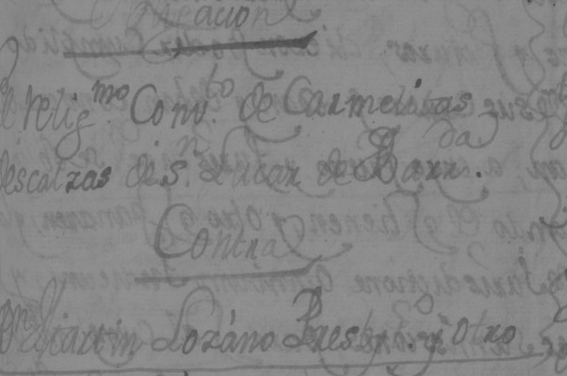 el Relig.mo Conv.to de Carmelitas
descalzas de S.n Lucar de Barr.da
Contra
Martin Lozáno Presb.o y otro